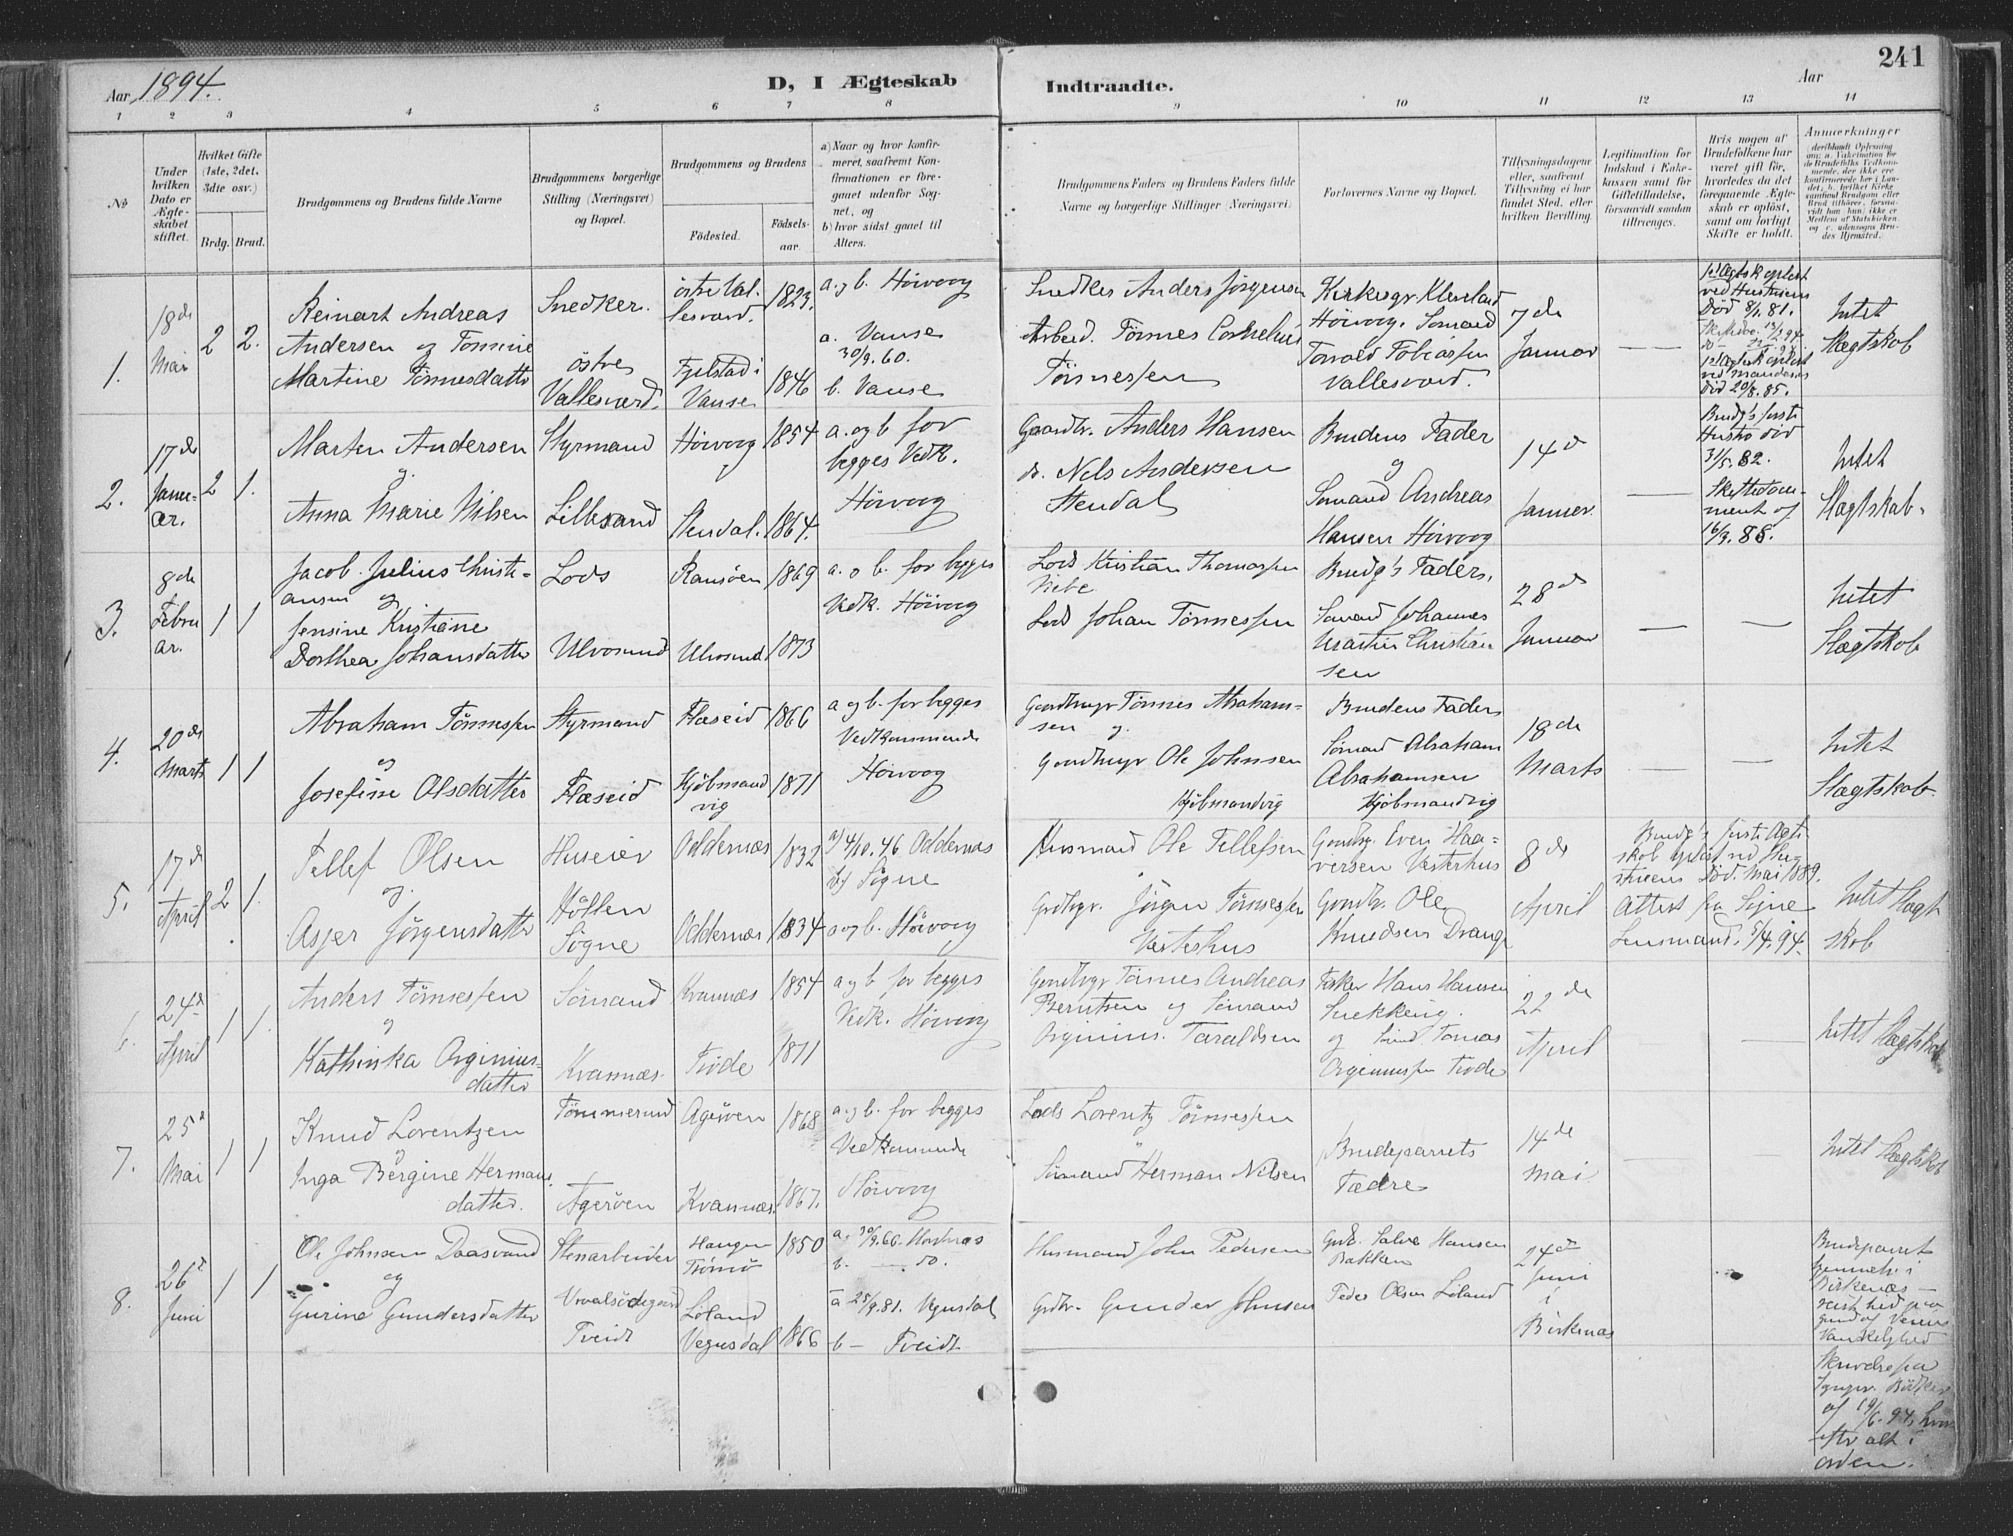 Aar 1894.
D, I Ægteskab
Indtraadte.
Aar
241
1 2 3 4 5 6 7 8 9 10 11 12 13 14
№
Under hvilken Dato er Ægteskabet stiftet.
Hvilket Gifte (1ste, 2det, 3die osv.)
Brdg. Brud.
Brudgommens og Brudens fulde Navne
Brudgommens borgerlige Stilling (Næringsvei) og Bopæl.
Brudgommens og Brudens
Födested.
Födselsaar.
a) Naar og hvor konfirmeret, saafremt Konfirmationen er foregaaet udenfor Sognet, og
b) hvor sidst gaaet til Alters.
Brudgommens Faders og Brudens Faders fulde Navne og borgerlige Stillinger (Næringsvei)
Forlovernes Navne og Bopæl.
Tillysningsdagene eller, saafremt Tillysning ei har fundet Sted, efter hvilken Bevilling.
Legitimation for Indskud i Enkekassen samt for Giftetilladelse, forsaavidt saadan tiltrænges.
Hvis nogen af Brudefolkene har været gift før, hvorledes da det foregaaende Ægteskab er opløst, samt om lovligt Skifte er holdt.
Anmærkninger
1. 18de Mai 2 2.
Reinart Andreas
Andersen og Tomine
Martine Tönnesdatter
Snedker.
östre
Vallesværd.
östre Vallesværd. 1823.
Fjelstad i
Vanse 1846
a. og b. Höivog
a. Vanse
30/9. 60.
b. Vanse
Snedker Anders Jörgensen
Arbeid. Tönnes Cornelius
Tönnessen
Kirkesgr. Kleveland
Höivog. Sömand
Torvald Tobiassen
Vallesværd.
7de
Januar
—
ved Hustruens
Död 8/1. 81.
ved Mandens
Död 20/8. 85.
Intet
Slægtskab
2. 17de Januar. 2 1.
Marten Andersen
og
Anna Marie Nilsen
Styrmand
Lillesand
Höivog 1854
Stendal. 1864.
a. og b for
begges Vedk.
Höivog
Gaardbr. Anders Hansen
do. Nels Andersen
Stendal
Brudens Fader
og
Sömand Andreas
Hansen Höivog
14d
Januar.
—
Brudg's förste
Hustro död
31/5. 82.
Intet
Slægtskab.
3. 8de Februar. 1 1
Jacob Julius Christiansen
og
Jensine Kristiane
Dorthea Johansdatter
Lods
Ulvösund
Ransöen 1869
Ulvösund 1873
a. og b. for begges
Vedk. Höivog
Lods Kristian Thomassen
Vibe
Lods Johan Tönnessen
Brudg's Fader,
Sömand Johannes
Martin Christiansen
28d
Januar
— —
Intet
Slægtskab
4. 20de Marts 1 1
Abraham Tönnessen
og
Josefine Olsdatter
Styrmand
Flæseid
Flæseid 1866
Kjöbmandvig 1871
a og b. for begges
Vedkommende
Höivog
Gaardbruger Tönnes Abrahamsen
og
Gaardbruger Ole Johnsen
Kjöbmandvig
Brudens Fader
Sömand Abraham
Abrahamsen
Kjöbmandvig
18de
Marts
— —
Intet
Slægtskab.
5. 17d April 2 1.
Tellef Olsen
og
Asjer Jörgensdatter
Huseier
Höllen
Sögne
Oddernæs 1832
Oddernæs 1834
a) 4/10. 46 Oddernæs
b) Sögne
a og b. Höivog
Husmand Ole Tellefsen
Grdbrgr. Jörgen Tönnessen
Vesterhus
Gaardbrg. Even Haaversen Vesterhus
Gaardbr. Ole
Knudsen Drange
8de
April
Brudg's förste Ægteskab oplöst ved Hustruens Död. Mai 1889.
Attest fra Sögne
Lensmand. 5/4. 94.
Intet Slægtskab
6. 24d April 1 1.
Anders Tönnessen
og
Kathinka Orginiusdatter
Sömand
Kvannæs.
Kvannæs 1854
Tröde 1871
a og b for begges
Vedk. Höivog
Gaardbrgr Tönnes Andreas
Berntsen og Sömand
Orginius. Taraldsen
Fisker Hans Hansen
og Sömd. Tomas
Orginiussen Tröde
22de
April
—
Intet Slægtskab
7. 25d Mai 1 1
Knud Lorentzen
og
Inga Bergine Hermansdatter.
Tömmermand
Ageröen
Ageröen 1868
Kvannæs. 1867.
a. og b. for begges
Vedkommende
Höivog
Lods Lorentz Tönnessen
Sömand Herman Nilsen
Brudeparrets
Fædre
14de
Mai
— —
Intet Slægtskab
8. 26d Juni 1 1
Ole Johnsen Daasvand
og
Gurine Gundersdatter
Stenarbeider
Tveidt
Tromö 1850
Löland
Vegusdal 1866
a. 30/9. 66.
b. — do.
a 25/9. 81. Vegusdal
b — Tveidt
Husmand John Pedersen
Grdbr. Gunder Johnsen
Grdb. Salve Hansen
Bakken
Peder Olsen Löland
24de
Juni
i
Birkenæs
Brudeparret
i
Birkenæs —
Skrivelse fra
af 19/6. 94,
alt i
orden.